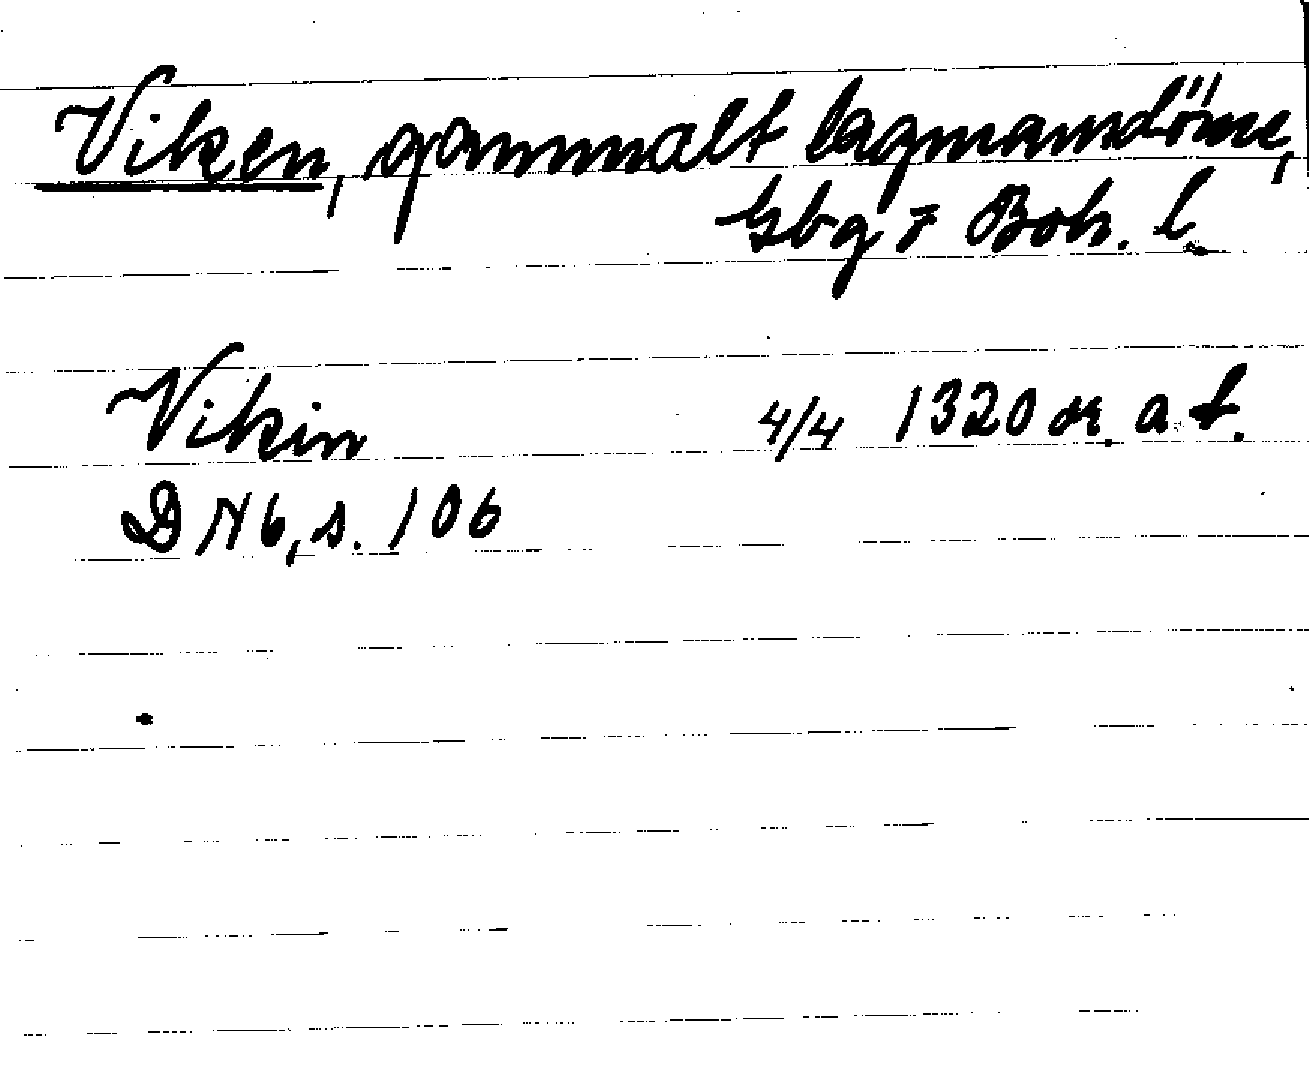 Viken, gammalt lagmansdöme,
Gbg o Boh. l.
Vikin 4/4 1320 or. a. t.
DN 6, s. 106